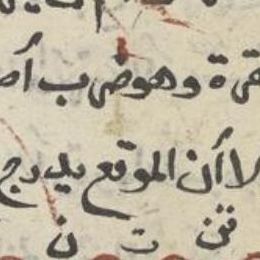 قرة وهو ضرب أ
لا أن الموقع يدرج
تن ت ن